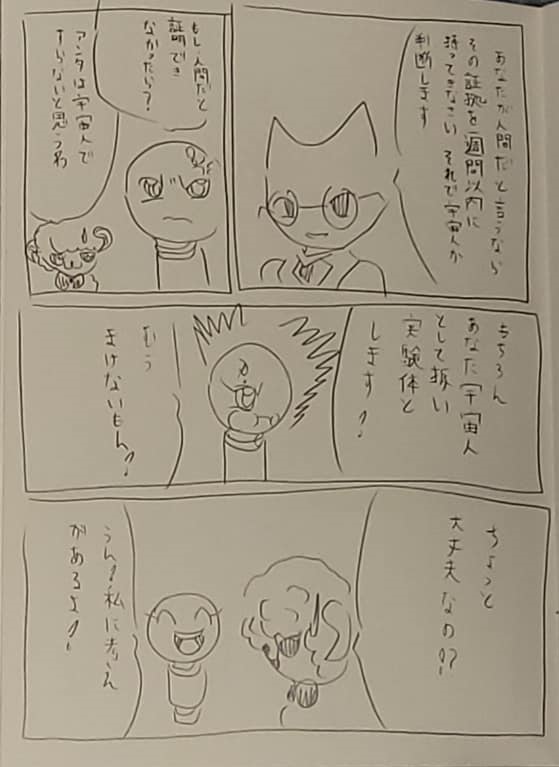 あなたが人間だと言うなら
その証拠を一週間以内に
持ってきなさい それで宇宙人か
判断します
もし人間だと
証明でき
なかったら?
アンタは宇宙人で
すらないと思うわ
もちろん
あなた宇宙人
として扱い
実験体と
します!
むぅ
まけないもん!
ちょっと
大丈夫なの!?
うん!私に考え
があるよ!